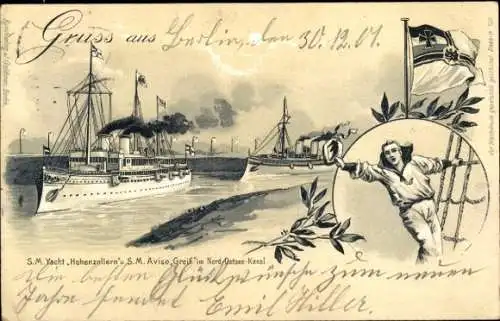 Gruss aus Berlin, den 30.12.01.
S.M. Yacht „Hohenzollern" u. S.M. Aviso „Greif" im Nord-Ostsee-Kanal
die besten Glückwünsche zum neuen
Jahre sendet Emil Hiller.